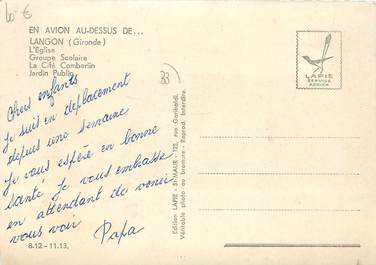 10 €
EN AVION AU-DESSUS DE...
LANGON (Gironde)
L'Église
Groupe Scolaire
La Cité Comberlin
Jardin Public
33
LAPIE
SERVICE
AERIEN
Chers enfants
Je suis en déplacement
depuis une semaine
Je vous espère en bonne
santé Je vous embrasse
en attendant de venir
vous voir Papa
8.12 - 11.13.
Edition LAPIE - St-MAUR - 123, rue Garibaldi.
Véritable photo au bromure - Reprod. Interdite.